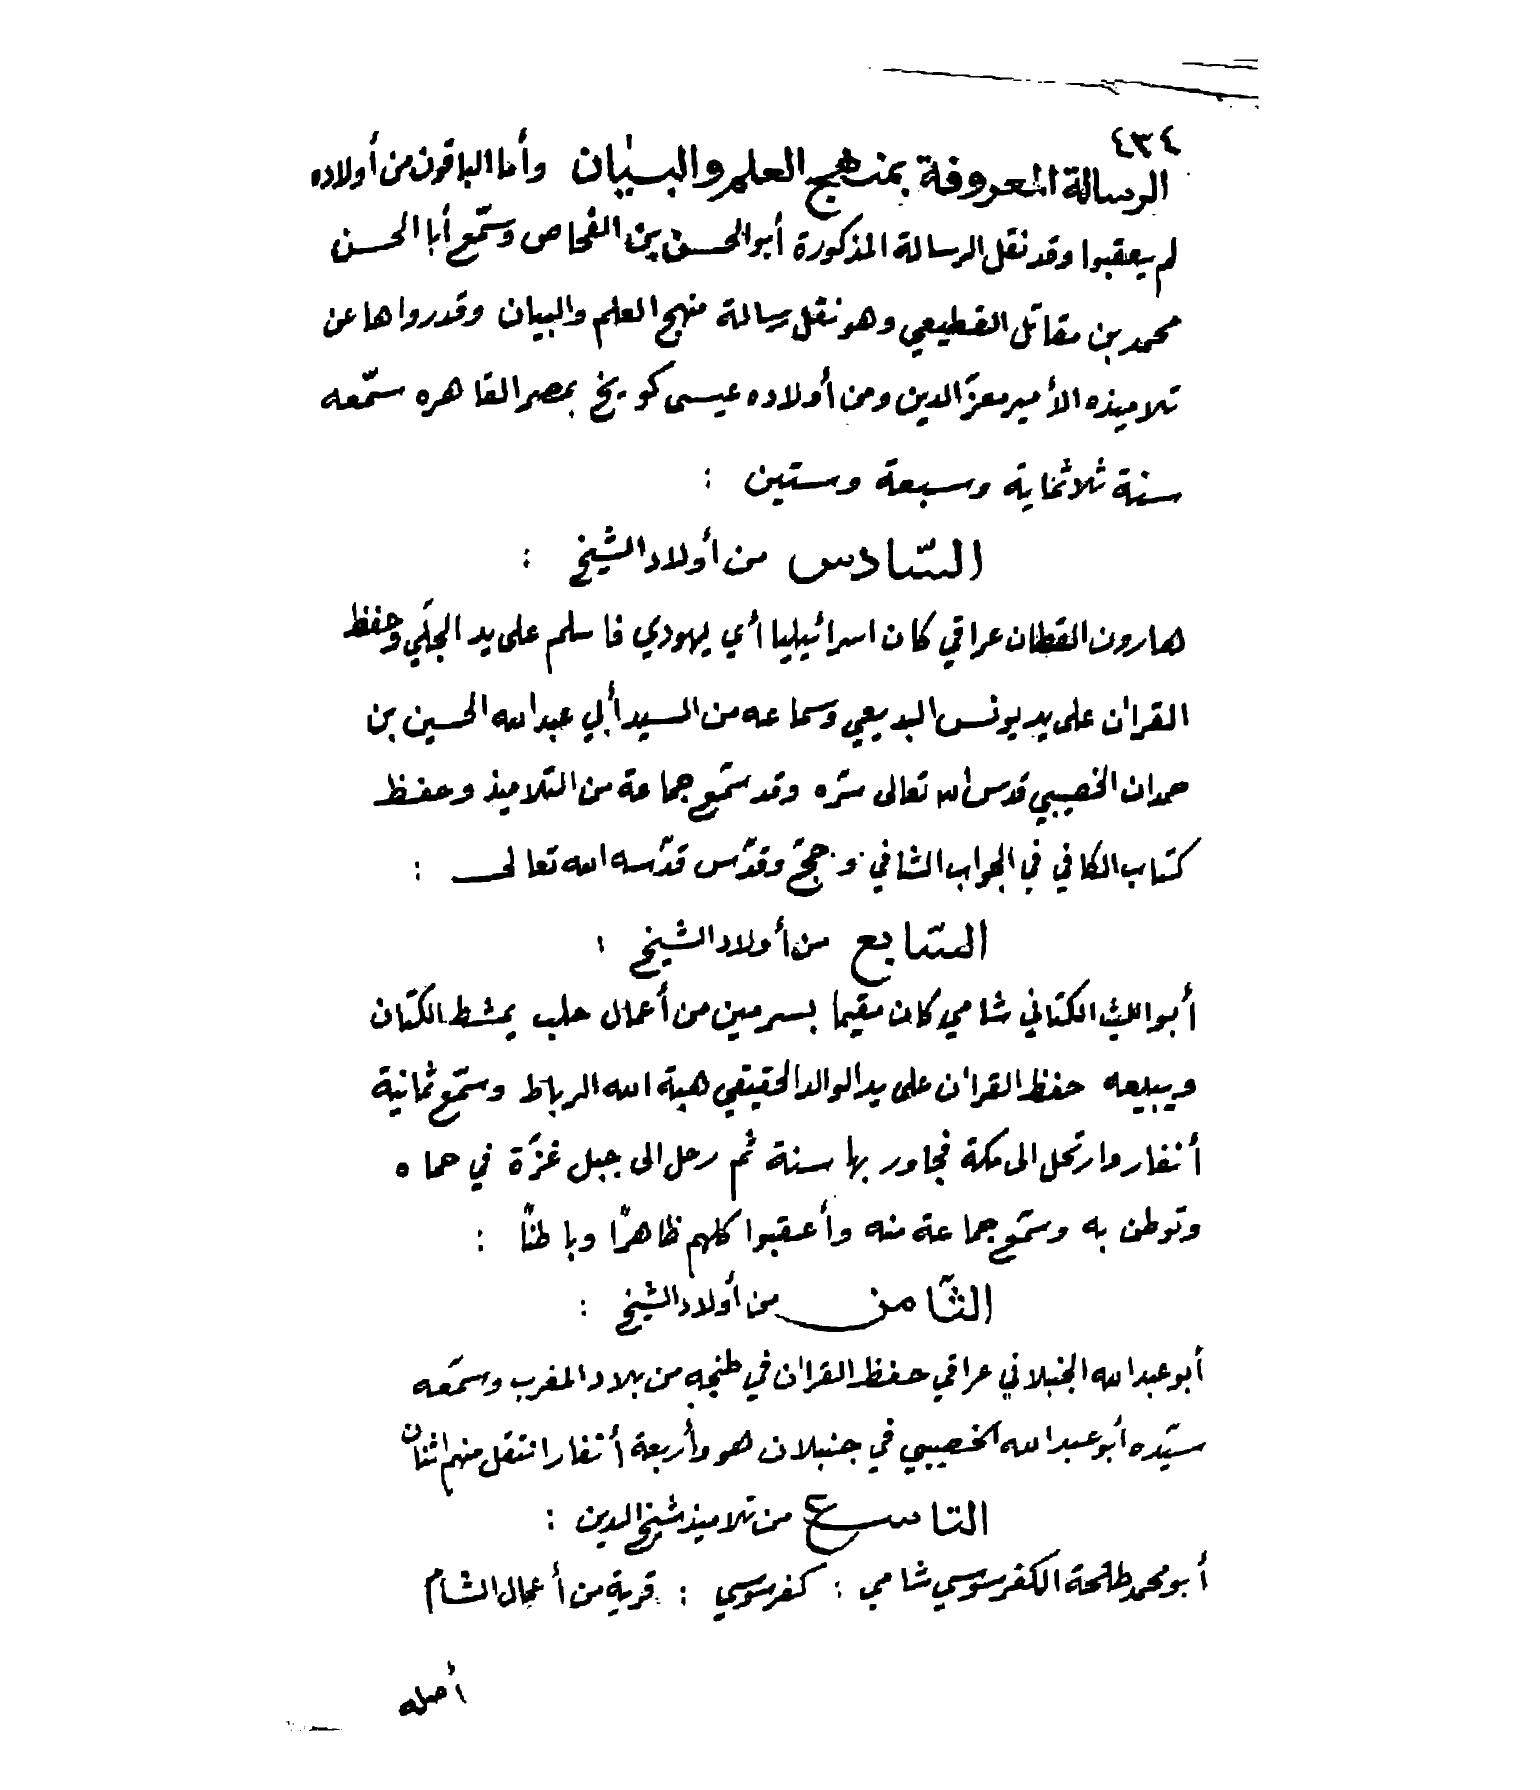 ٤٣٤
الرسالة المعروفة بمنهج العلم والبيان وأما الباقون من أولاده
لم يعقبوا وقد نقل الرسالة المذكورة أبو الحسن بن الفحاص وسمّع أبا الحسن
محمد بن مقاتل القطيعي وهو نقل رسالة منهج العلم والبيان وقد رواها عن
تلاميذه الأمير معزّ الدين ومن أولاده عيسى كويخ بمصر القاهره سمّعه
سنة ثلاثماية وسبعة وستين :
السّادس من أولاد الشيخ :
هارون القطان عراقي كان اسرائيليا أي يهودي فاسلم على يد الجلّي وحفظ
القران على يد يونس البديعي وسماعه من السيد أبي عبد الله الحسين بن
حمدان الخصيبي قدس الله تعالى سّره وقد سمّع جماعة من التلاميذ وحفظ
كتاب الكافي في الجواب الشافي وحجّ وقدّس قدّسه الله تعالى :
السّابع من أولاد الشيخ :
أبو الليث الكتاني شامي كان مقيما بسرمين من أعمال حلب يمشط الكتان
ويبيعه حفظ القران على يد الوالد الحقيقي هبة الله الرباط وسمّع ثمانية
أنفار وارتحل الى مكة فجاور بها سنة ثم رحل الى جبل غزّة في حماه
وتوطن به وسمّع جماعة منه وأعقبوا كلهم ظاهرًا وباطنًا :
الثّامن من أولاد الشيخ :
أبو عبد الله الجنبلاني عراقي حفظ القران في طنجه من بلاد المغرب وسمّعه
سيّده أبو عبد الله الخصيبي في جنبلان هو وأربعة أنفار انتقل منهم اثنان
التاسع من تلاميذ شيخ الدين :
أبو محمد طلحة الكفرسوسي شامي : كفرسوسي : قرية من أعمال الشام
أصله